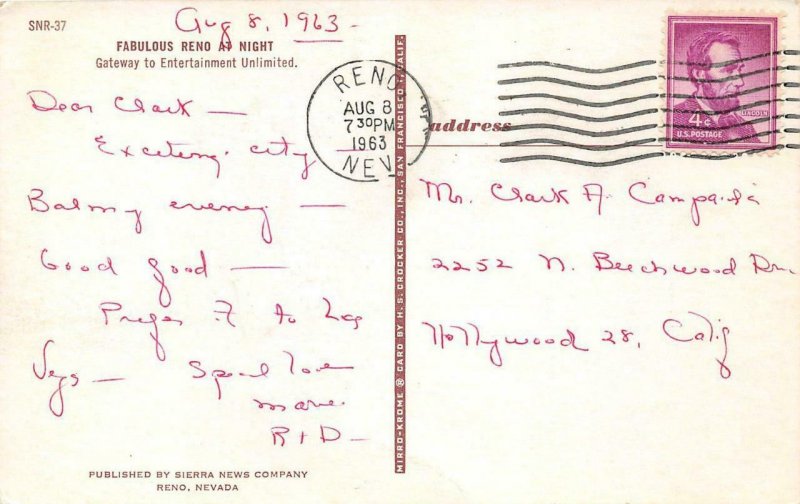 SNR-37
Aug 8, 1963 -
FABULOUS RENO AT NIGHT
Gateway to Entertainment Unlimited.
Dear Clark —
Exciting city
Balmy evening —
Good food —
Prefer it to Las
Vegas —
love
R + D —
PUBLISHED BY SIERRA NEWS COMPANY
RENO, NEVADA
MIRRO-KROME ® CARD BY H. S. CROCKER CO., INC., SAN FRANCISCO 1, CALIF.
RENO
AUG 8
7 30 PM
1963
NEV
address
LINCOLN
4¢
U.S. POSTAGE
Mr. Clark A.
2252 N. Beechwood
Hollywood 28, Calif